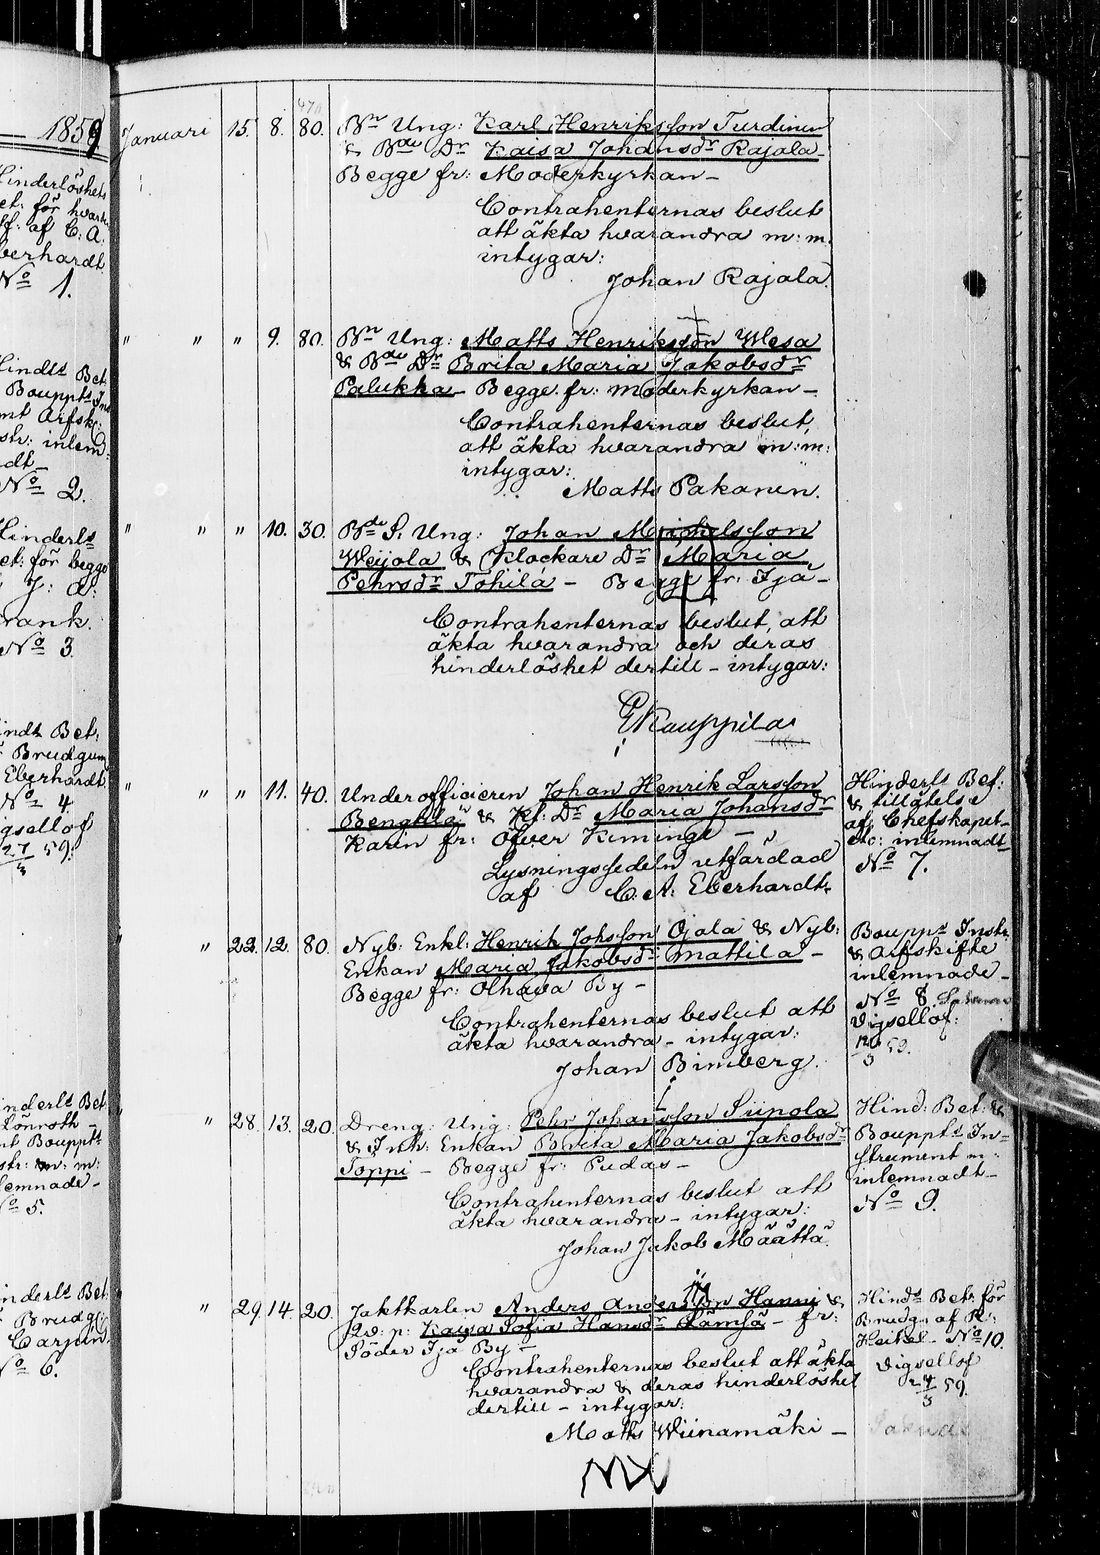 1859
Hinderlöshets
Bet: för hvart
af C. A.
Eberhardt
No 1.
Hindts Bet.
Bouppts
Arfsk:
inlem
No 2.
Hinderls
Bet: för begge
No 3
Bet:
Brudgum
Eberhardt
No 4
Vigsellof
27/3 59.
Hinderls Bet
Lönroth -
Bouppts
str: m: m:
inlemnade -
No 5.
Hinderls Bet:
Brudg:
Carpin
No 6.
Januari 15. 8. 80. Bn Ung: Karl Henriksson Turdinen
& Bde Dr Kaisa Johansdr Rajala -
Begge fr: Moderkyrkan -
Contrahenternas beslut
att äkta hvarandra m: m.
intygar:
Johan Rajala.
" " " 9. 80. Bn Ung: Matts Henriksson Wesa
& Bde Dr Brita Maria Jakobsdr
Palukka - Begge fr: Moderkyrkan -
Contrahenternas beslut,
att äkta hvarandra m: m:
intygar:
Matts Pakanen.
" " " 10. 30. Bde S. Ung: Johan Michelsson
Weijola & Klockare Dr Maria
Pehrsdr Tohila - Begge fr: Ijå -
Contrahenternas beslut, att
äkta hvarandra och deras
hinderlöshet dertill - intygar:
Kauppila
" " " 11. 40. Underofficieren Johan Henrik Larsson
Bengtlä & Kf: Dr Maria Johansdr
Karin fr: Öfver Kiminge -
Lysningssedeln utfärdad
af C. A. Eberhardt.
Hinderls Bet:
& tillåtelse
af Chefskapet
etc: inlemnadt
No 7.
" 22. 12. 80. Nyb: Enkl: Henrik Johsson Ojala & Nyb:
Enkan Maria Jakobsdr Mattila -
Begge fr: Olhava By -
Contrahenternas beslut att
äkta hvarandra - intygar:
Johan Bimberg.
Bouppts Instr
& Arfskifte
inlemnade -
No 8.
Vigsellof:
59.
" 28. 13. 20. Dreng: Ung: Pehr Johansson Siipola
& Inh: Enkan Brita Maria Jakobsdr
Toppi - Begge fr: Pudas -
Contrahenternas beslut att
äkta hvarandra - intygar:
Johan Jakob Määttä.
Hind: Bet: &
Bouppts In=
strument m:
inlemnadt -
No 9.
" 29. 14. 20. Jaktkarlen Anders Andersson Hanni &
Qv: p: Kaisa Sofia Hansdr Lämsä - fr:
Söder Ijå By -
Contrahenternas beslut att äkta
hvarandra & deras hinderlöshet
dertill - intygar:
Matts Wiinamäki -
Hinds Bet: för
Brudg: af R:
Heikel - No 10.
Vigsellof
59.